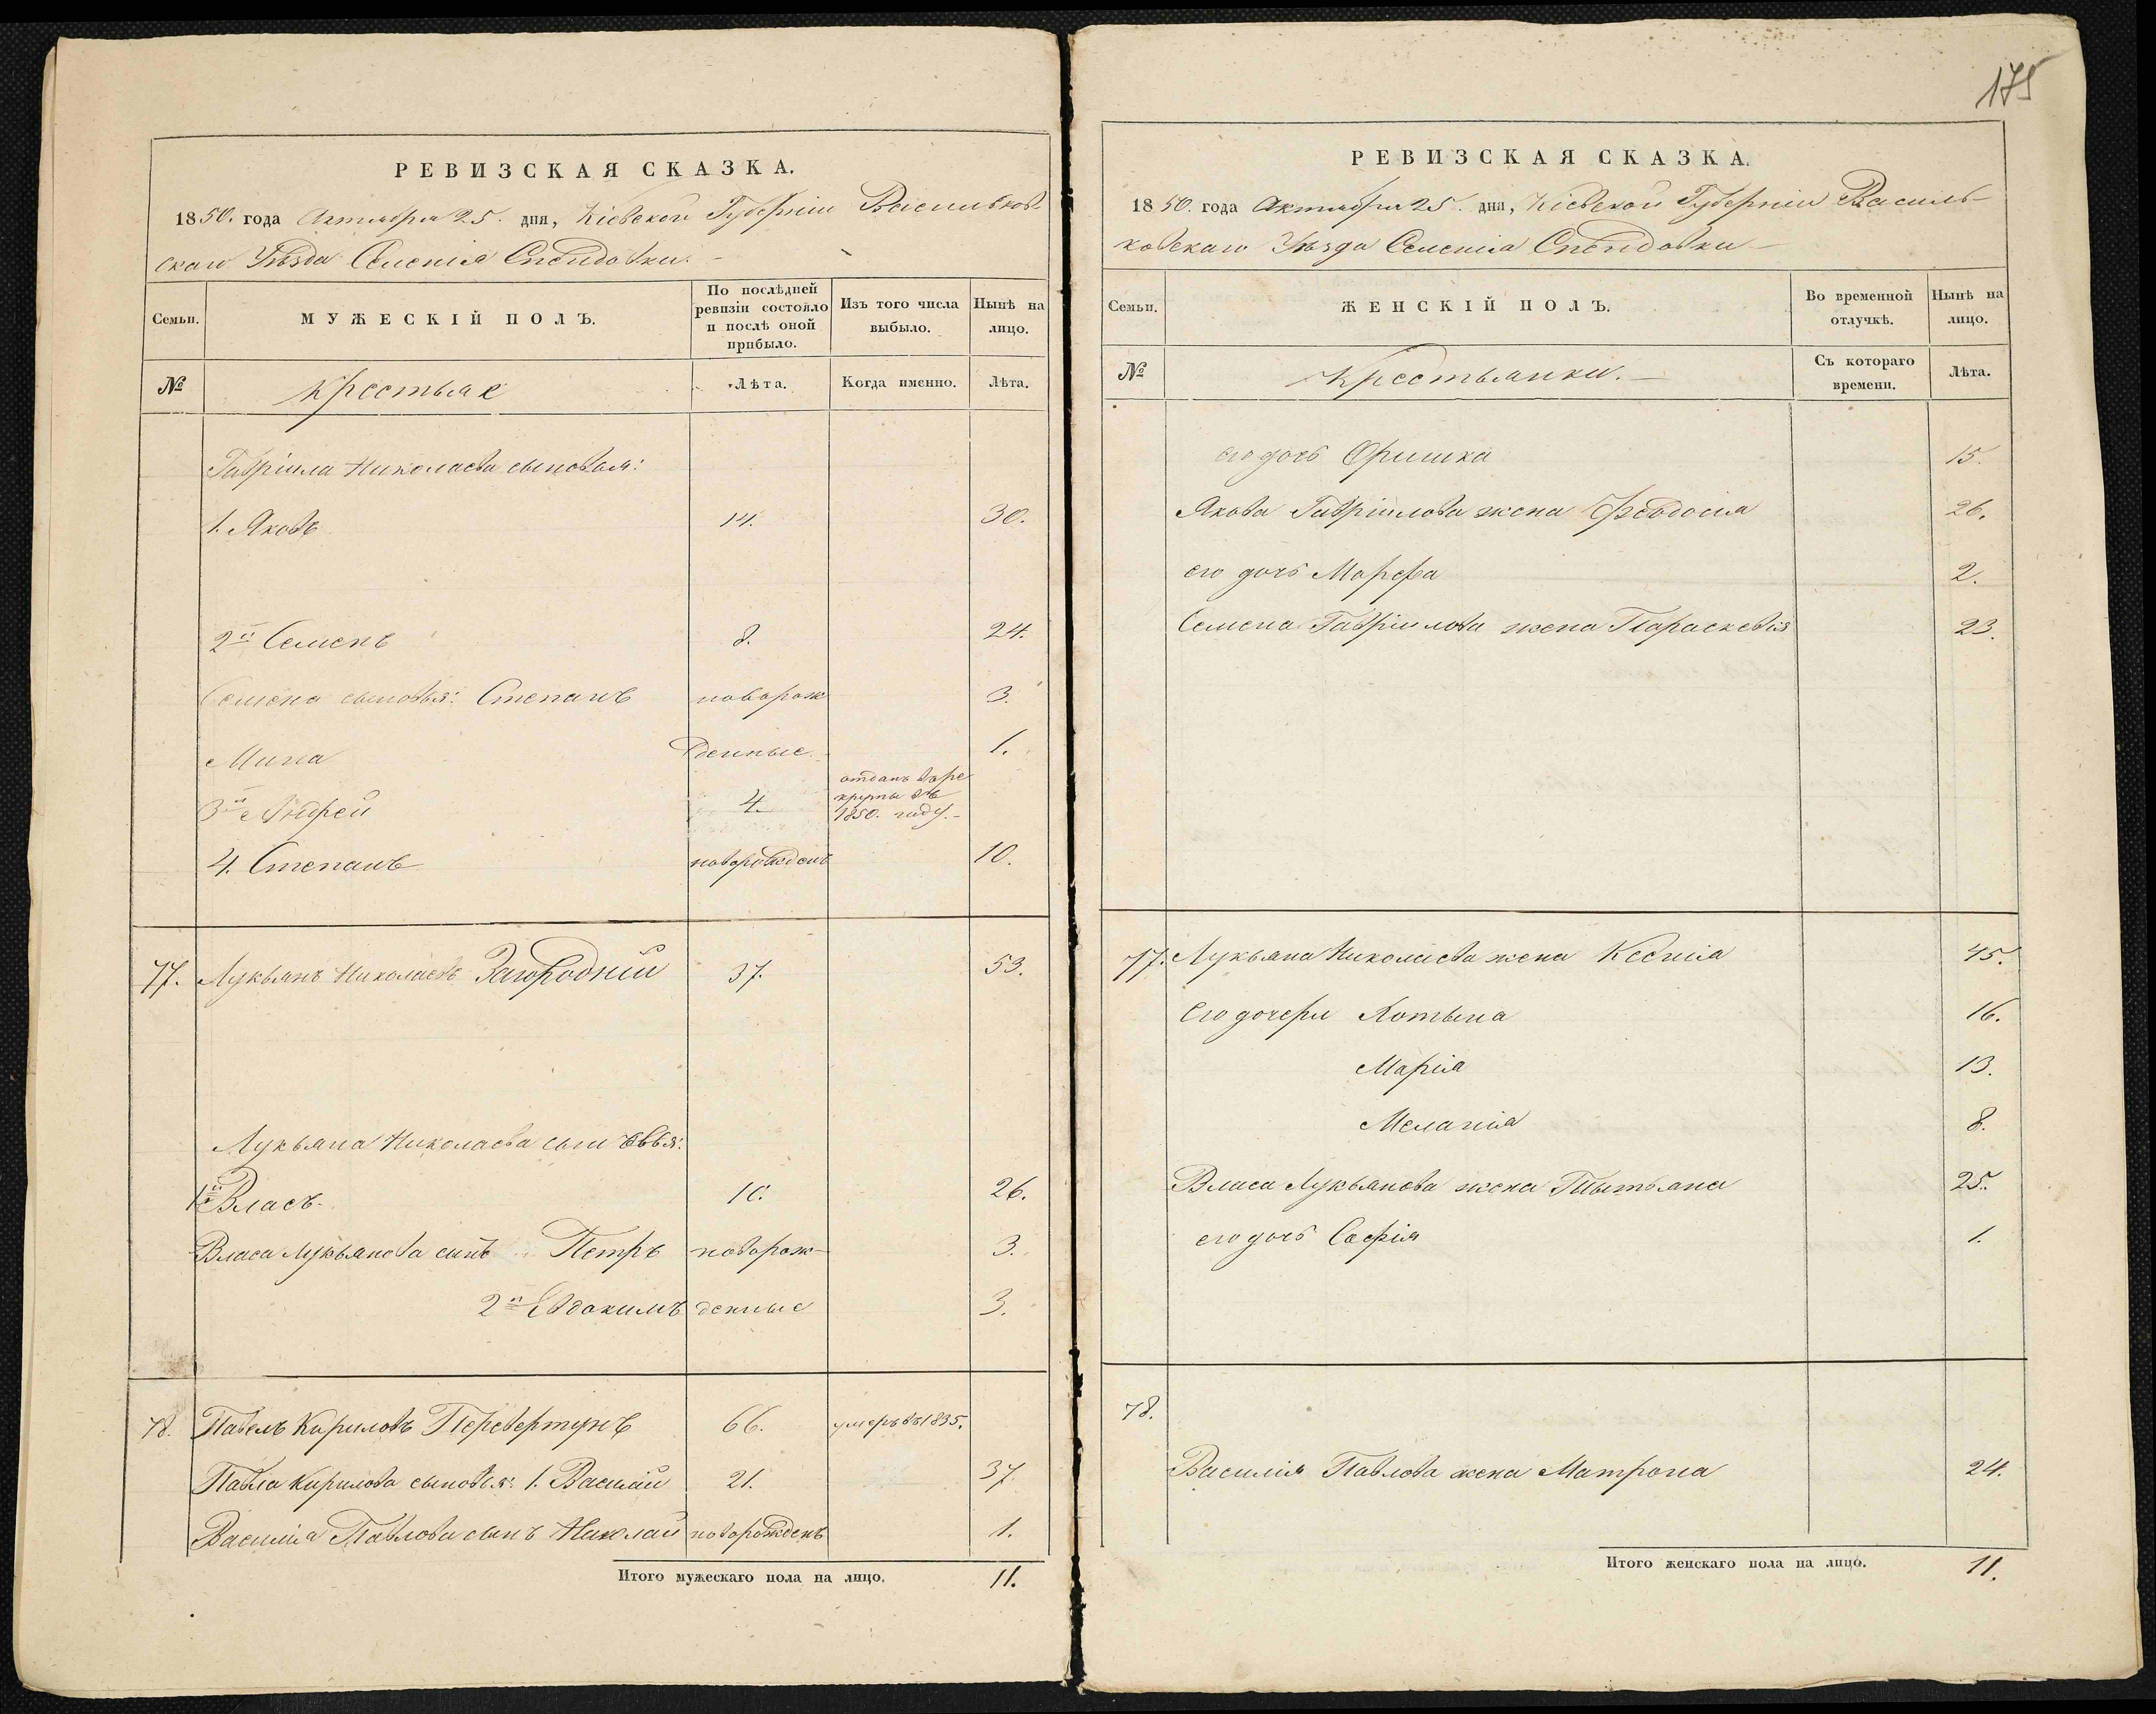 РЕВИЗСКАЯ СКАЗКА.
1850. года Октября 25. дня, Кіевской Губерніи Васильков-
скаго Уѣзда Селенія Спендовки. -
Семьи. МУЖЕСКІЙ ПОЛЪ. По послѣдней ревизіи состояло и послѣ оной прибыло. Изъ того числа выбыло. Нынѣ на лицо.
№ Крестьяне Лѣта. Когда именно. Лѣта.
Гавріила Николаева сыновья:
1. Яковъ 14. 30.
2й Семенъ 8. 24.
Семена сыновья: Степанъ новорож 3.
Мина денные 1.
3й Андрей 4. отданъ въ ре
круты въ
1850. году. -
4. Степанъ новорожденъ 10.
77. Лукьянъ Николаевъ Загородній 37. 53.
Лукьяна Николаева сыновья:
1й Власъ 10. 26.
Власа Лукьянова сынъ Петръ новорож- 3.
2й Евдокимъ денные 3.
78. Павелъ Кириловъ Перевертунъ 66. умеръ въ 1835.
Павла Кирилова сыновья: 1. Василій 21. 37.
Василія Павлова сынъ Николай новорожденъ 1.
Итого мужескаго пола на лицо. 11.
175
РЕВИЗСКАЯ СКАЗКА.
1850. года Октября 25. дня, Кіевской Губерніи Василь-
ковскаго Уѣзда Селенія Спендовки -
Семьи. ЖЕНСКІЙ ПОЛЪ. Во временной отлучкѣ. Нынѣ на лицо.
№ Крестьянки. - Съ котораго времени. Лѣта.
его дочь Оришка 15.
Якова Гавріилова жена Феодосія 26.
его дочь Марфа 2.
Семена Гавріилова жена Параскевія 23.
77. Лукьяна Николаева жена Ксенія 45.
Его дочери 16.
Марія 13.
Меланія 8.
Власа Лукьянова жена Татьяна 25.
его дочь Софія 1.
78.
Василія Павлова жена Матрона 24.
Итого женскаго пола на лицо. 11.